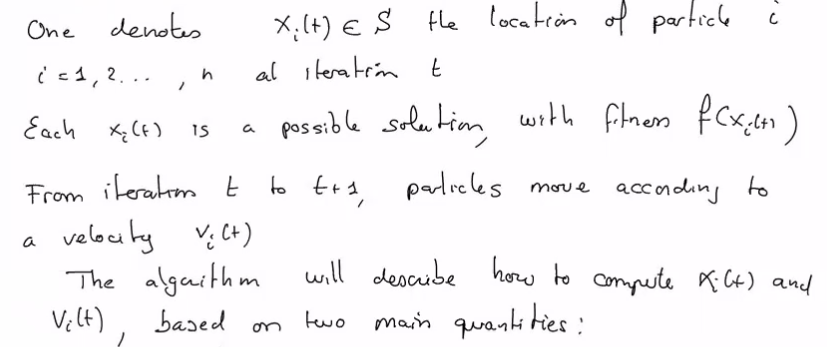 One denotes x_i(t) ∈ S the location of particle i
i = 1, 2 ... , n at iteration t
Each x_i(t) is a possible solution, with fitness f(x_i(t))
From iteration t to t+1, particles move according to
a velocity v_i(t)
The algorithm will describe how to compute x_i(t) and
v_i(t), based on two main quantities: